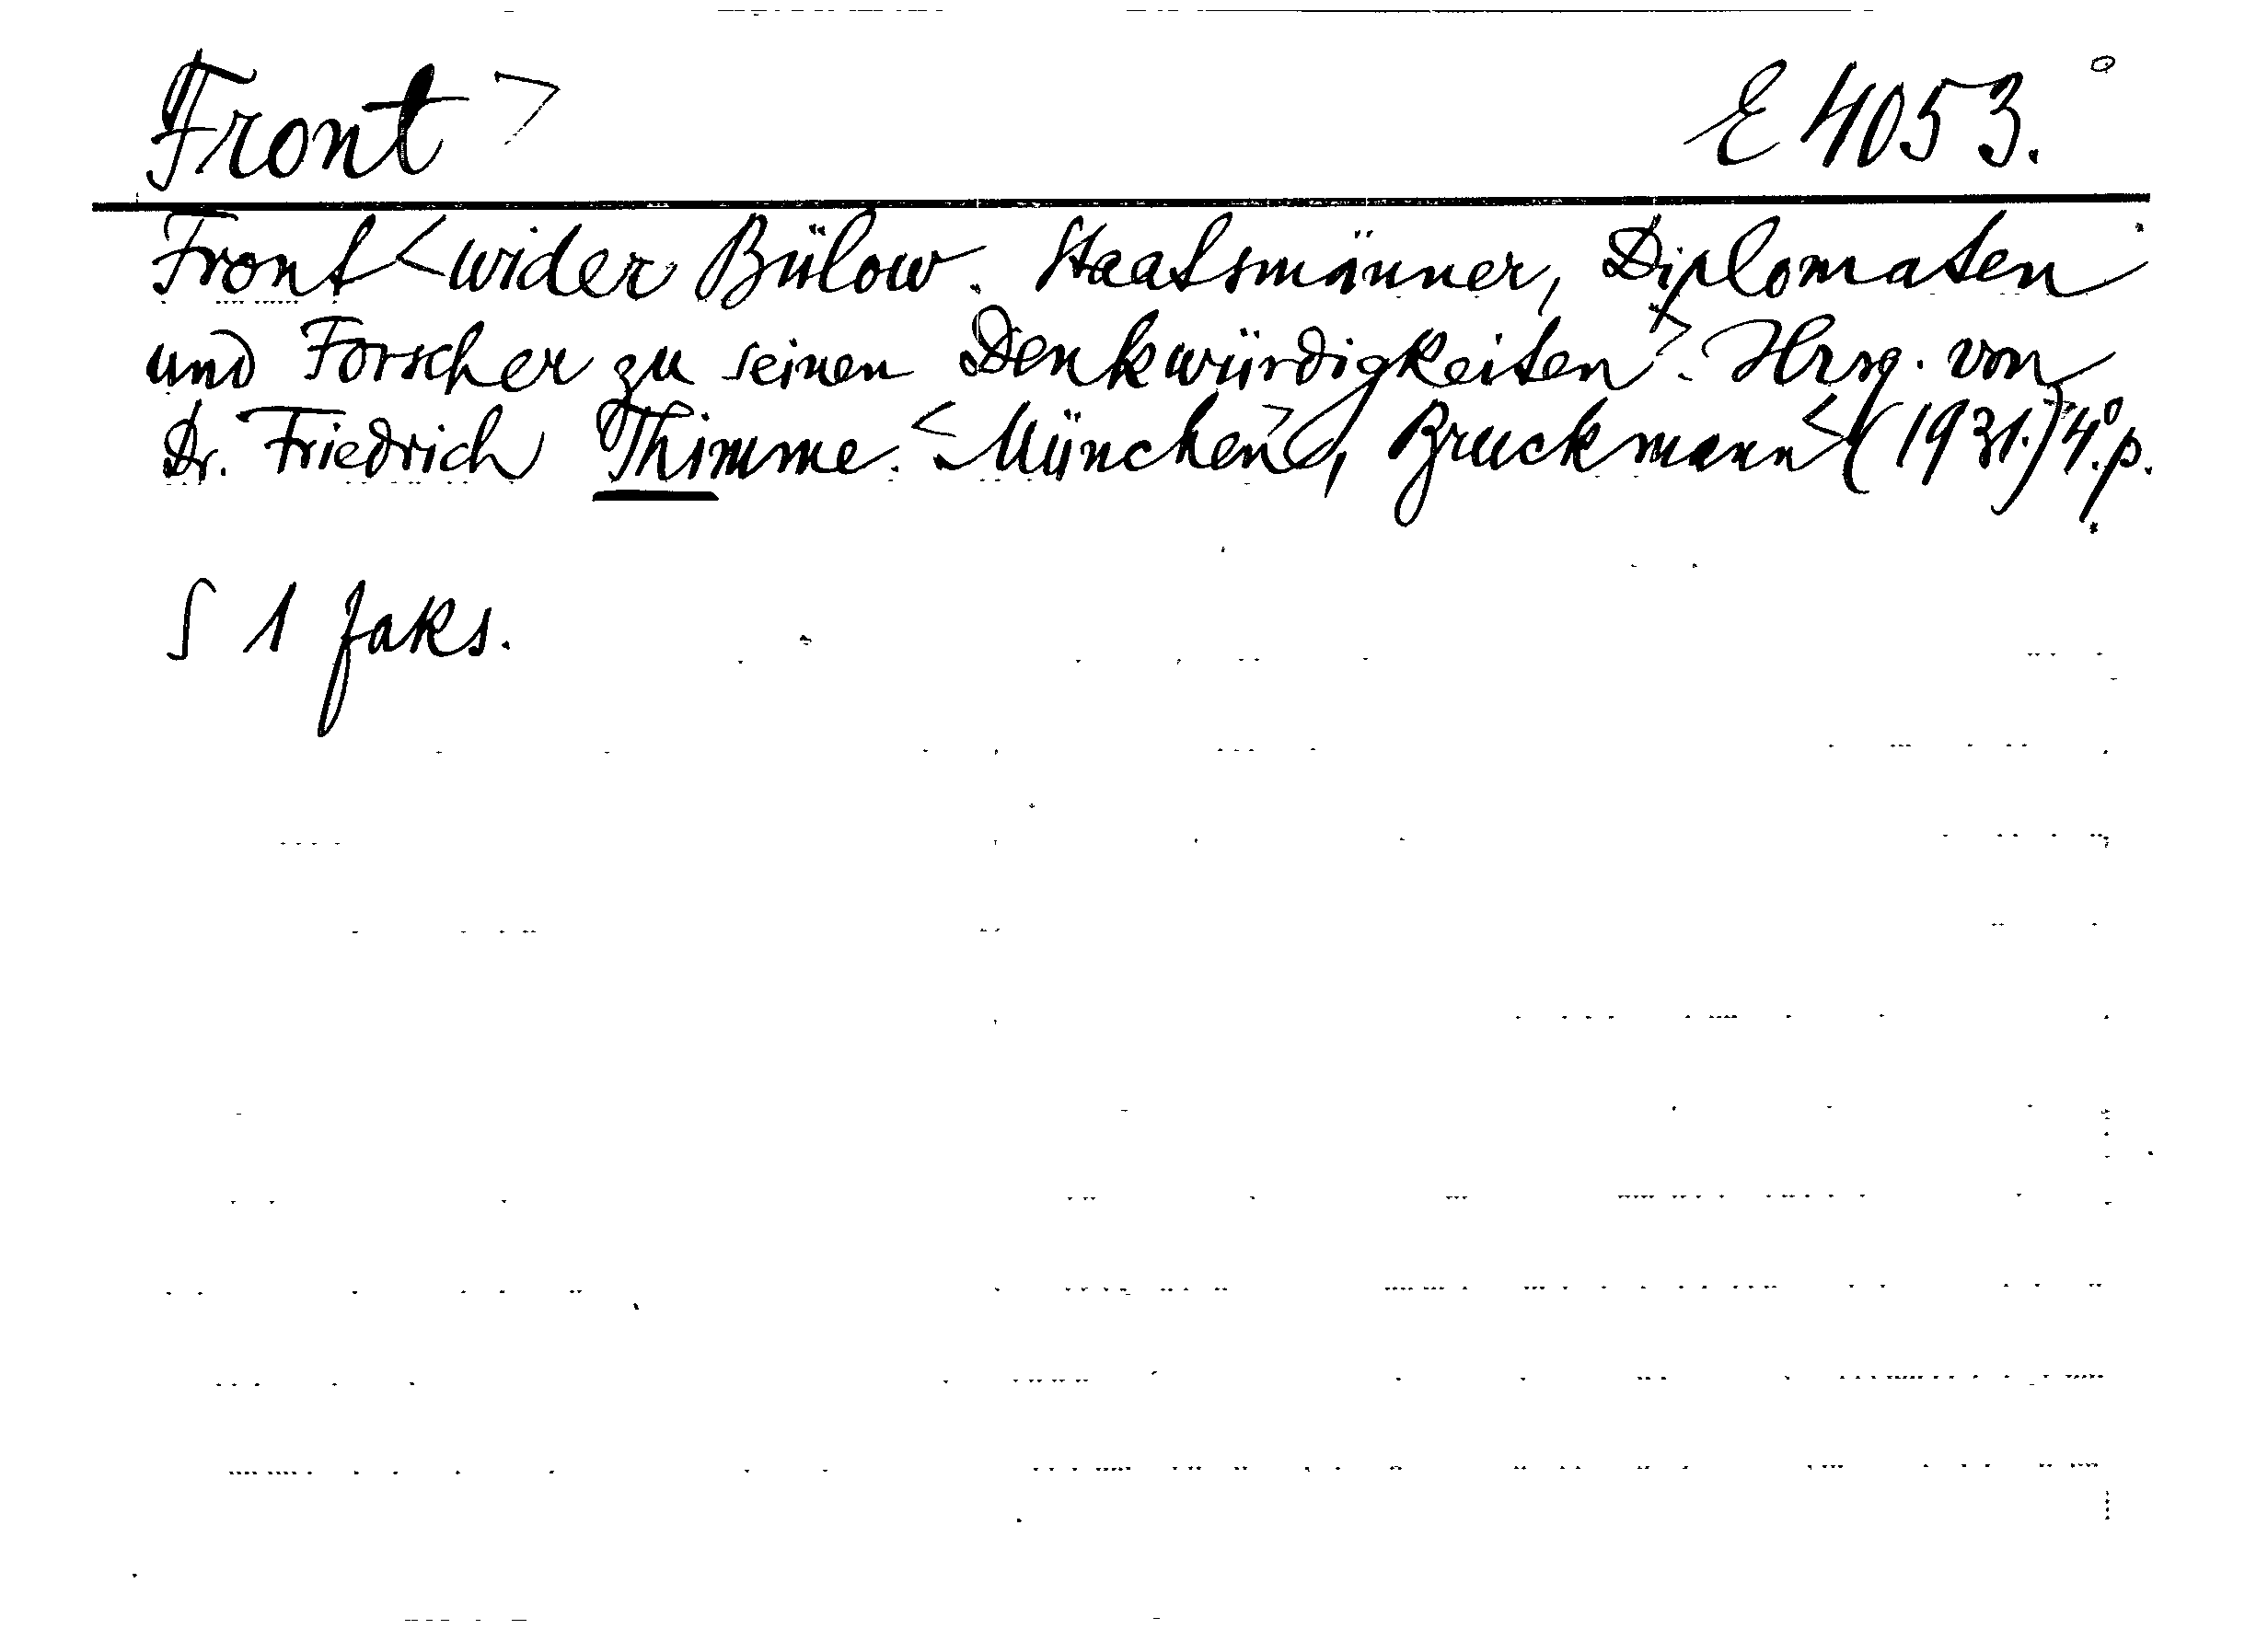 Front > E 4053.
Front < wider Bülow. Staatsmänner, Diplomaten
und Forscher zu seinen Denkwürdigkeiten >. Hrsg. von
Dr. Friedrich Thimme. < München >, Bruckmann < (1931.) > 4° p.
S 1 Faks.